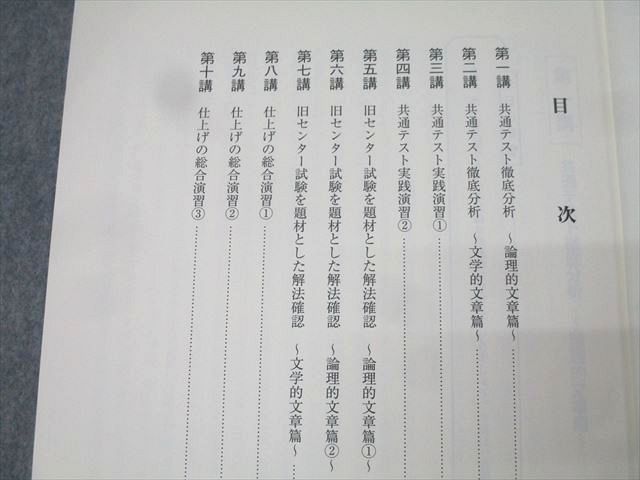 目次
第一講 共通テスト徹底分析 ～論理的文章篇～
第二講 共通テスト徹底分析 ～文学的文章篇～
第三講 共通テスト実践演習①
第四講 共通テスト実践演習②
第五講 旧センター試験を題材とした解法確認 ～論理的文章篇①～
第六講 旧センター試験を題材とした解法確認 ～論理的文章篇②～
第七講 旧センター試験を題材とした解法確認 ～文学的文章篇～
第八講 仕上げの総合演習①
第九講 仕上げの総合演習②
第十講 仕上げの総合演習③